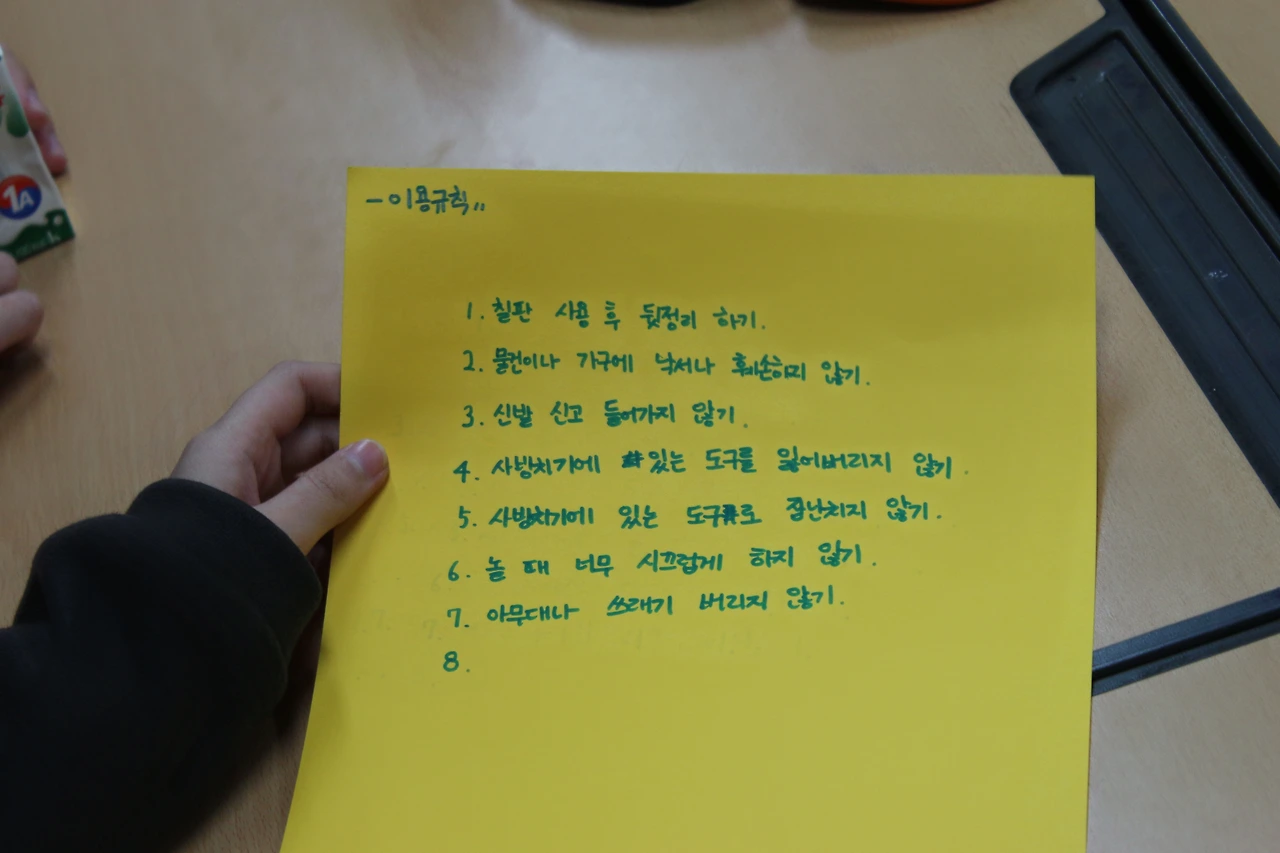 - 이용규칙,,
1. 칠판 사용 후 뒷정리 하기.
2. 물건이나 가구에 낙서나 훼손하지 않기.
3. 신발 신고 들어가지 않기.
4. 사방치기에 있는 도구를 잃어버리지 않기.
5. 사방치기에 있는 도구로 장난치지 않기.
6. 놀 때 너무 시끄럽게 하지 않기.
7. 아무대나 쓰래기 버리지 않기.
8.
1A